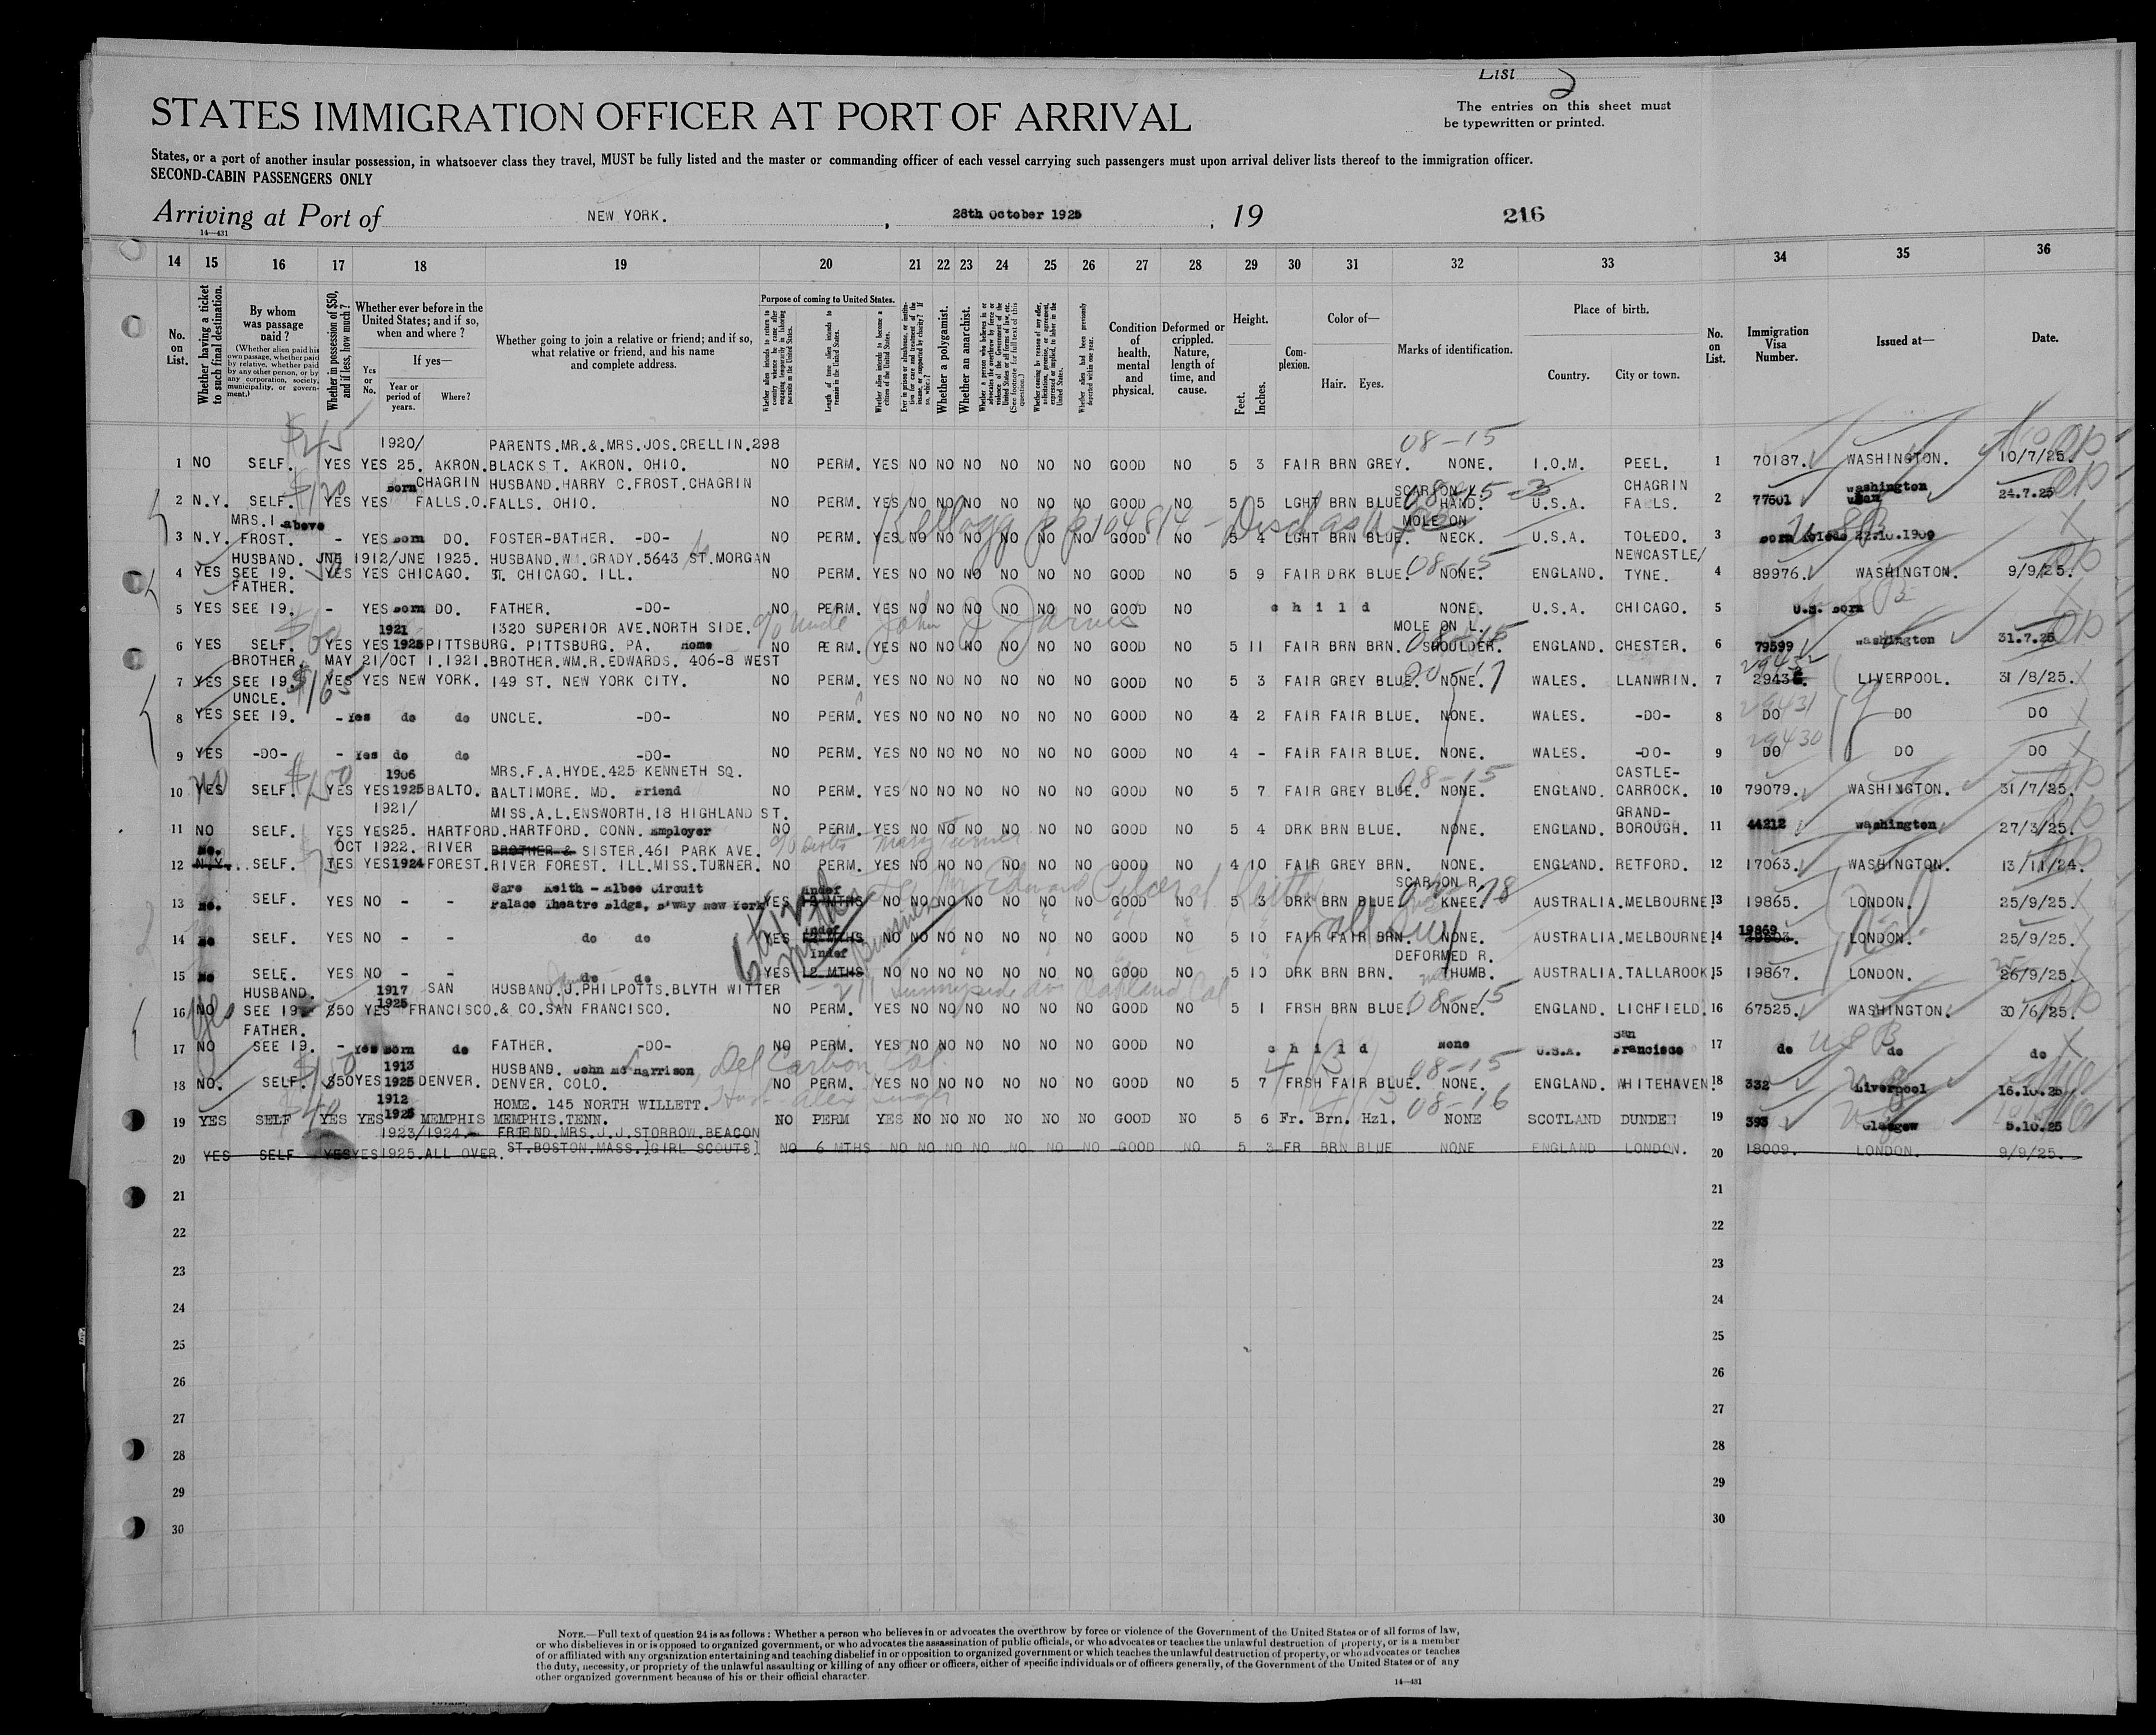 List 5
STATES IMMIGRATION OFFICER AT PORT OF ARRIVAL
The entries on this sheet must
be typewritten or printed.
States, or a port of another insular possession, in whatsoever class they travel, MUST be fully listed and the master or commanding officer of each vessel carrying such passengers must upon arrival deliver lists thereof to the immigration officer.
SECOND-CABIN PASSENGERS ONLY
Arriving at Port of NEW YORK. , 28th October 1925 , 19 216
14—431
14 15 16 17 18 19 20 21 22 23 24 25 26 27 28 29 30 31 32 33 34 35 36
No. on List.
Whether having a ticket to such final destination.
By whom was passage paid?
(Whether alien paid his own passage, whether paid by relative, whether paid by any other person, or by any corporation, society, municipality, or government.)
Whether in possession of $50, and if less, how much?
Whether ever before in the United States; and if so, when and where?
If yes—
Yes or No.
Year or period of years.
Where?
Whether going to join a relative or friend; and if so, what relative or friend, and his name and complete address.
Purpose of coming to United States.
Length of time alien intends to remain in the United States.
Whether alien intends to become a citizen of the United States.
Whether a polygamist.
Whether an anarchist.
Condition of health, mental and physical.
Deformed or crippled. Nature, length of time, and cause.
Height.
Feet.
Inches.
Complexion.
Color of—
Hair. Eyes.
Marks of identification.
Place of birth.
Country. City or town.
No. on List.
Immigration Visa Number.
Issued at—
Date.
$45 1920/ PARENTS.MR.& MRS.JOS.CRELLIN.298 08-15
1 NO SELF. YES YES 25. AKRON. BLACK ST. AKRON. OHIO. NO PERM. YES NO NO NO NO NO NO GOOD NO 5 3 FAIR BRN GREY. NONE. I.O.M. PEEL. 1 70187. WASHINGTON. 10/7/25.
born CHAGRIN HUSBAND.HARRY C.FROST.CHAGRIN SCAR ON CHAGRIN washington
2 N.Y. SELF. $120 YES YES FALLS.O. FALLS. OHIO. NO PERM. YES NO NO NO NO NO NO GOOD NO 5 5 LGHT BRN BLUE HAND. U.S.A. FALLS. 2 77601 24.7.25
MRS.I above MOLE ON
3 N.Y. FROST. - YES born DO. FOSTER-BATHER. -DO- NO PERM. YES NO NO NO NO NO NO GOOD NO 5 4 LGHT BRN BLUE. NECK. U.S.A. TOLEDO. 3 born Toledo 22.10.1909
HUSBAND. JNE 1912/JNE 1925. HUSBAND.WM.GRADY.5643 ST.MORGAN 08-15 NEWCASTLE/
4 YES SEE 19. YES YES CHICAGO. ST. CHICAGO. ILL. NO PERM. YES NO NO NO NO NO NO GOOD NO 5 9 FAIR DRK BLUE. NONE. ENGLAND. TYNE. 4 89976. WASHINGTON. 9/9/25.
FATHER.
5 YES SEE 19. - YES born DO. FATHER. -DO- NO PERM. YES NO NO NO NO NO NO GOOD NO child NONE. U.S.A. CHICAGO. 5 U.S. born
1921 1320 SUPERIOR AVE.NORTH SIDE. c/o Uncle John J Jarvis MOLE ON L.
6 YES SELF. $60 YES YES 1925 PITTSBURG. PITTSBURG. PA. home NO PERM. YES NO NO NO NO NO NO GOOD NO 5 11 FAIR BRN BRN. SHOULDER. ENGLAND. CHESTER. 6 79599 washington 31.7.25
BROTHER. MAY 21/OCT 1.1921. BROTHER.WM.R.EDWARDS. 406-8 WEST 29432
7 YES SEE 19. $165 YES YES NEW YORK. 149 ST. NEW YORK CITY. NO PERM. YES NO NO NO NO NO NO GOOD NO 5 3 FAIR GREY BLUE. NONE. WALES. LLANWRIN. 7 LIVERPOOL. 31/8/25.
UNCLE. 29431
8 YES SEE 19. - Yes do do UNCLE. -DO- NO PERM. YES NO NO NO NO NO NO GOOD NO 4 2 FAIR FAIR BLUE. NONE. WALES. -DO- 8 DO DO DO
29430
9 YES -DO- - Yes do do -DO- NO PERM. YES NO NO NO NO NO NO GOOD NO 4 - FAIR FAIR BLUE. NONE. WALES. -DO- 9 DO DO DO
1906 MRS.F.A.HYDE.425 KENNETH SQ. 08-15 CASTLE-
10 YES SELF. YES YES 1925 BALTO. BALTIMORE. MD. Friend NO PERM. YES NO NO NO NO NO NO GOOD NO 5 7 FAIR GREY BLUE. NONE. ENGLAND. CARROCK. 10 79079. WASHINGTON. 31/7/25.
1921/ MISS.A.L.ENSWORTH.18 HIGHLAND ST. GRAND-
11 NO SELF. YES YES 25. HARTFORD. HARTFORD. CONN. Employer NO PERM. YES NO NO NO NO NO NO GOOD NO 5 4 DRK BRN BLUE. NONE. ENGLAND. BOROUGH. 11 44212 washington 27/3/25.
no. OCT 1922. RIVER BROTHER & SISTER.461 PARK AVE. c/o Sister Mary Turner
12 N.Y. SELF. YES YES 1924 FOREST. RIVER FOREST. ILL.MISS.TURNER. NO PERM. YES NO NO NO NO NO NO GOOD NO 4 10 FAIR GREY BRN. NONE. ENGLAND. RETFORD. 12 17063. WASHINGTON. 13/11/24.
Care Keith - Albee Circuit indef SCAR ON R.
13 no. SELF. YES NO - - Palace Theatre Bldgs, B'way New York YES NO NO NO NO NO NO NO GOOD NO 5 3 DRK BRN BLUE KNEE. AUSTRALIA. MELBOURNE. 13 19865. LONDON. 25/9/25.
indef 19869
14 no SELF. YES NO - - do do YES NO NO NO NO NO NO NO GOOD NO 5 10 FAIR FAIR BRN. NONE. AUSTRALIA. MELBOURNE. 14 LONDON. 25/9/25.
indef DEFORMED R.
15 no SELF. YES NO - - do do YES 2 MTHS NO NO NO NO NO NO NO GOOD NO 5 10 DRK BRN BRN. THUMB. AUSTRALIA. TALLAROOK 15 19867. LONDON. 26/9/25.
HUSBAND. 1917 SAN HUSBAND.J.PHILPOTTS.BLYTH WITTER 211 Sunnyside Av Oakland Cal
16 NO SEE 19 $50 YES 1925 FRANCISCO. & CO.SAN FRANCISCO. NO PERM. YES NO NO NO NO NO NO GOOD NO 5 1 FRSH BRN BLUE. 08-15 NONE. ENGLAND. LICHFIELD. 16 67525. WASHINGTON. 30/6/25.
FATHER. San
17 NO SEE 19. - Yes born do FATHER. -DO- NO PERM. YES NO NO NO NO NO NO GOOD NO child None U.S.A. Francisco 17 do do do
1913 HUSBAND. John Mc Harrison, Del Carbon Col. 08-15
18 NO. SELF. $50 YES 1925 DENVER. DENVER. COLO. NO PERM. YES NO NO NO NO NO NO GOOD NO 5 7 FRSH FAIR BLUE. NONE. ENGLAND. WHITEHAVEN. 18 332 Liverpool 16.10.25
1912 HOME. 145 NORTH WILLETT. 08-16
19 YES SELF YES YES 1925 MEMPHIS MEMPHIS.TENN. NO PERM YES NO NO NO NO NO NO GOOD NO 5 6 Fr. Brn. Hzl. NONE SCOTLAND DUNDEE 19 393 Glasgow 5.10.25
1923/1924. FRIEND.MRS.J.J.STORROW.BEACON
20 YES SELF YES YES 1925.ALL OVER. ST.BOSTON.MASS.[GIRL SCOUTS] NO 6 MTHS NO NO NO NO NO NO NO GOOD NO 5 3 FR BRN BLUE NONE ENGLAND LONDON. 20 18009. LONDON. 9/9/25.
21 21
22 22
23 23
24 24
25 25
26 26
27 27
28 28
29 29
30 30
NOTE.—Full text of question 24 is as follows: Whether a person who believes in or advocates the overthrow by force or violence of the Government of the United States or of all forms of law,
or who disbelieves in or is opposed to organized government, or who advocates the assassination of public officials, or who advocates or teaches the unlawful destruction of property, or is a member
of or affiliated with any organization entertaining and teaching disbelief in or opposition to organized government or which teaches the unlawful destruction of property, or who advocates or teaches
the duty, necessity, or propriety of the unlawful assaulting or killing of any officer or officers, either of specific individuals or of officers generally, of the Government of the United States or of any
other organized government because of his or their official character.
14—431